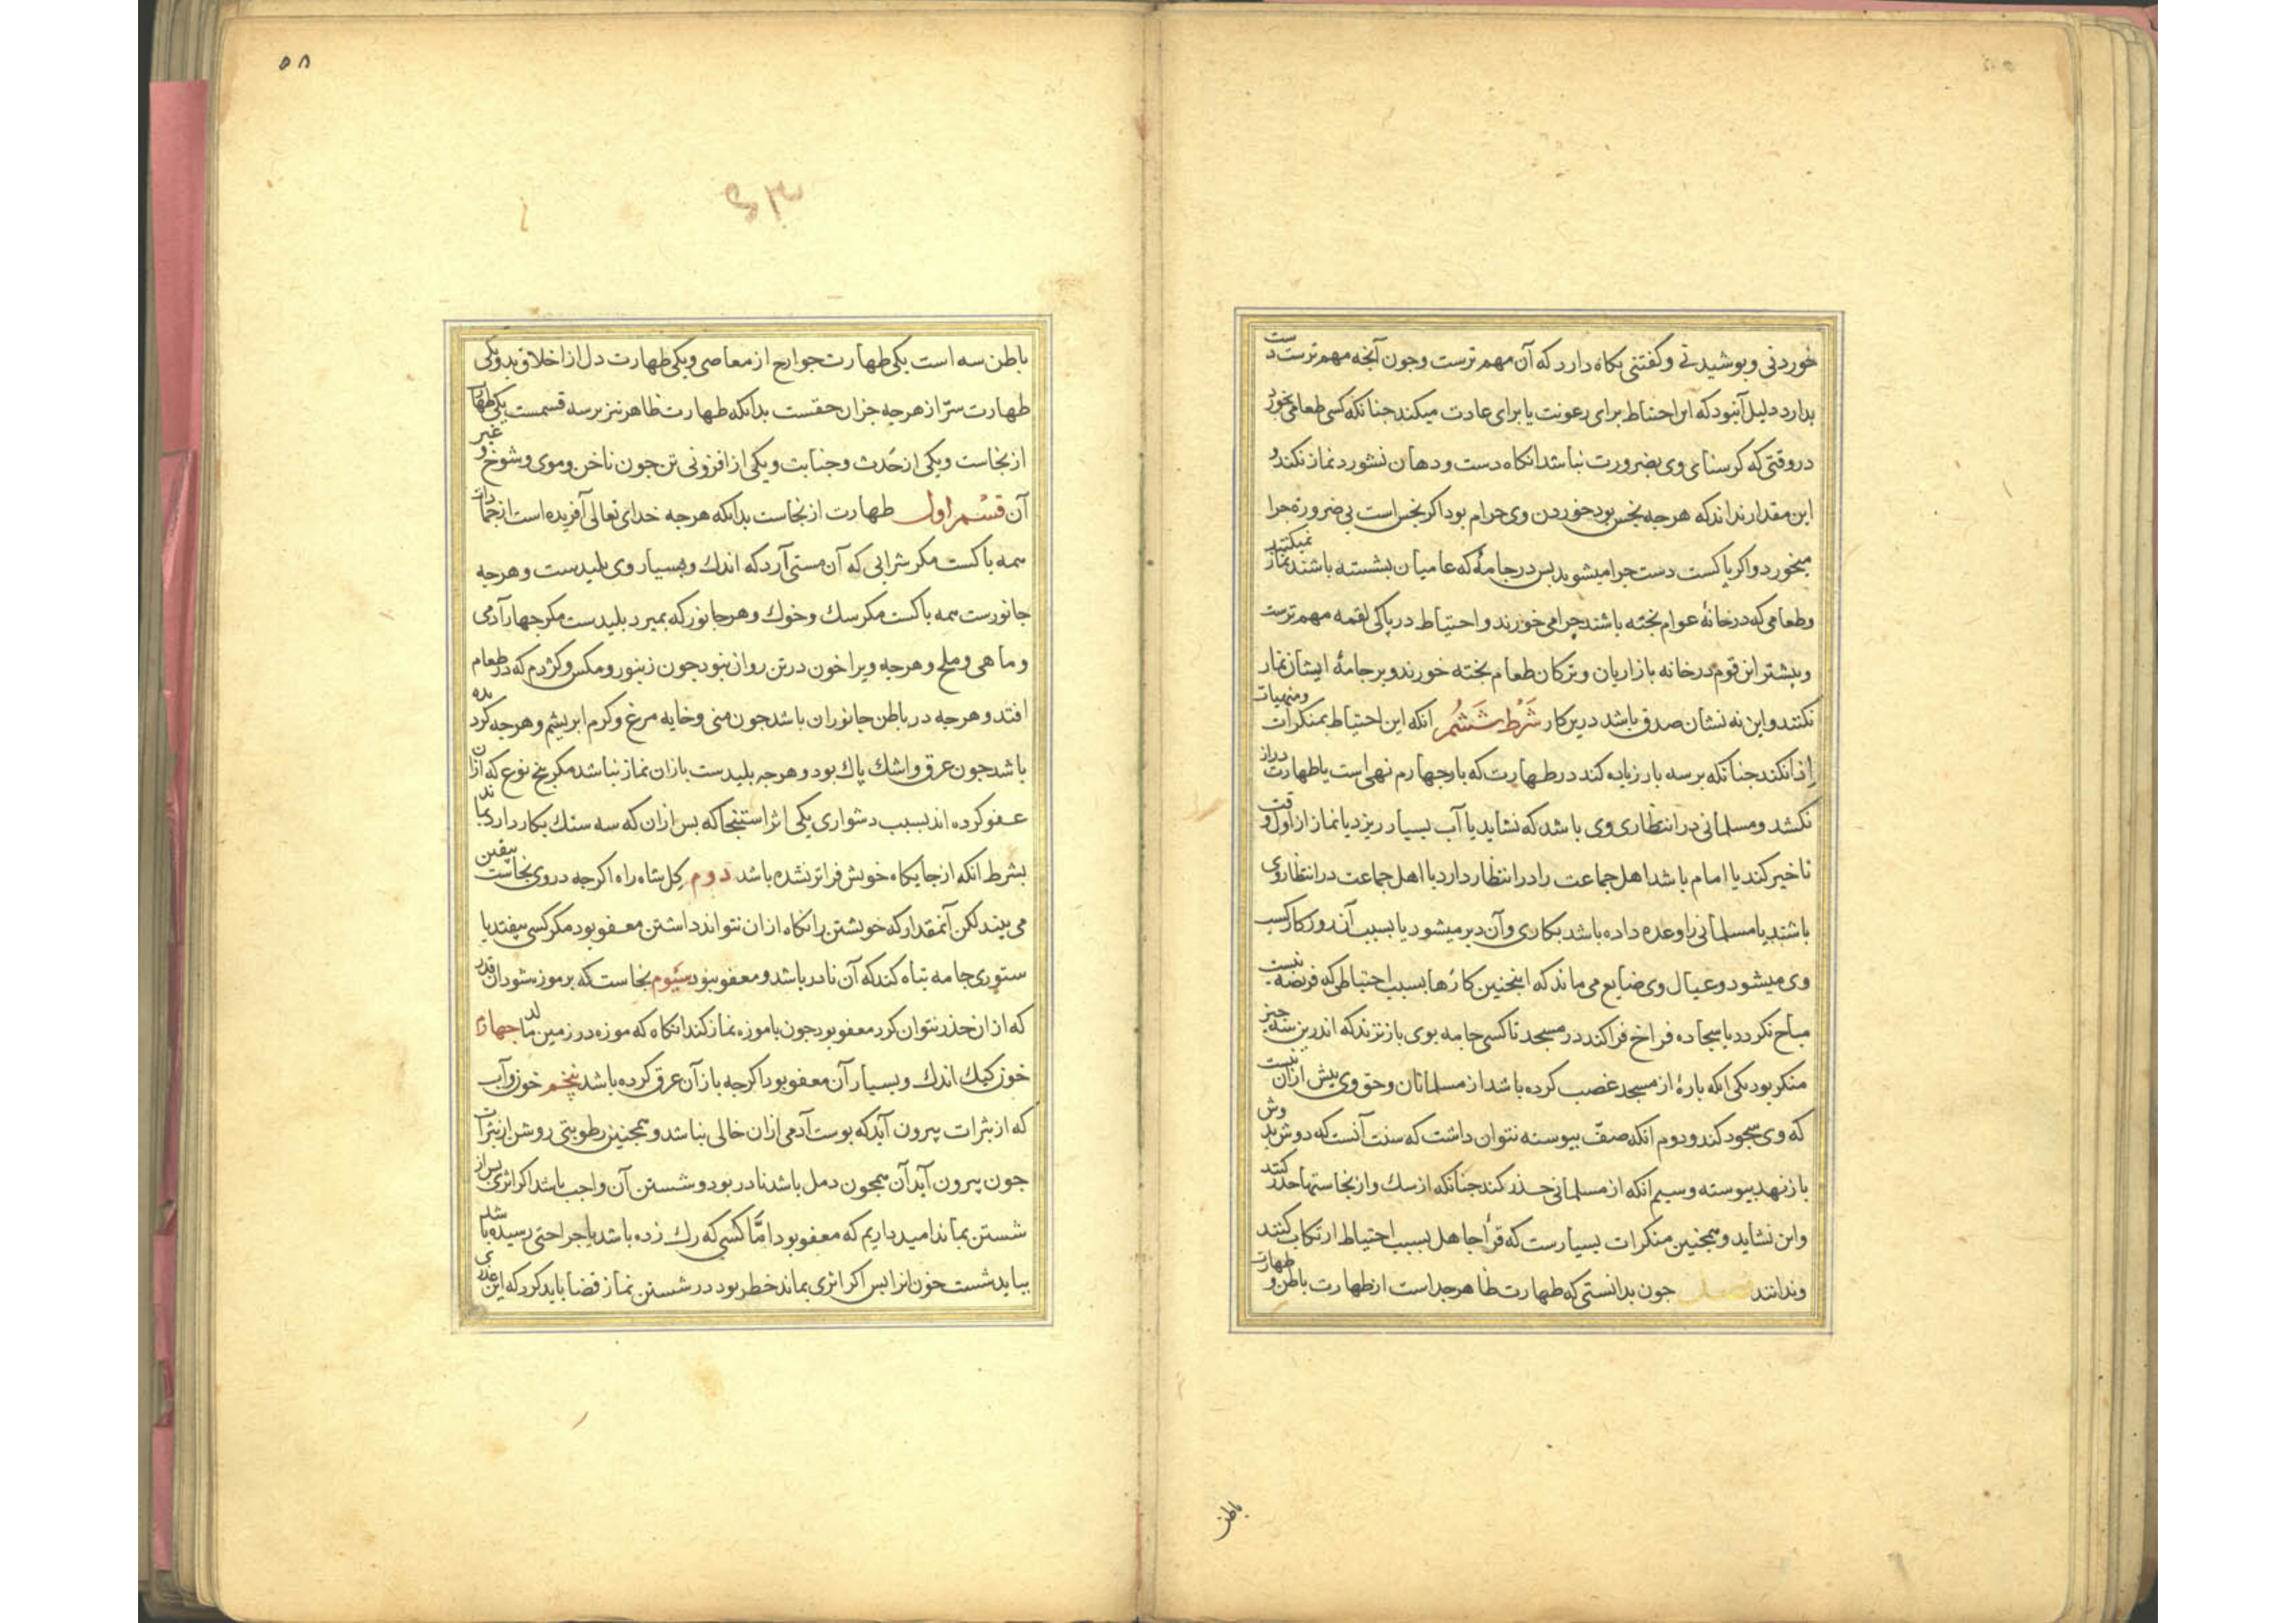 خوردنی وپوشیدنی وکفتنی نکاه دارد که آن مهم ترست وجون آنجه مهم ترست دست
بدارد دلیل آنبود که این احتیاط برای رعونت یا برای عادت میکند جنانکه کسی طعامی بخورد
دروقتی که کرسنای وی بضرورت نباشد انکاه دست ودهان نشورد نماز نکند و
این مقدار نداند که هرجه نجس بود خوردن وی حرام بود اکر نجس است بی ضرورة جرا
میخورد واکر پاکست دست جرا میشوید بس درجامۀ که عامیان بشسته باشند نماز نمیکنید
وطعامی که درخانۀ عوام پخته باشند جرا می خورند واحتیاط درپاکی لقمه مهم ترست
وبیشتر این قوم درخانه بازاریان وترکان طعام پخته خورند وبرجامۀ ایشان نماز
نکنند واین نه نشان صدق باشد درین کار شرط ششم انکه این احتیاط بمنکرات ومنهیات
ادا نکند جنانکه برسه بار زیاده کند درطهارت که بارجهارم نهی است یا طهارت دراز
نکشد ومسلمانی درانتظاری وی باشد که نشاید یا آب بسیار ریزد یا نماز از اول وقت
تاخیر کند یا امام باشد اهل جماعت را درانتظار دارد یا اهل جماعت درانتظار وی
باشند یا مسلمانی را وعده داده باشد بکاری وآن دیر میشود یا بسبب آن روزکار کسب
وی میشود وعیال وی ضایع می ماند که اینجنین کارها بسبب احتیاطی که فریضه نیست
مباح نکردد یا سجاده فراخ فراکند درمسجد تا کسی جامه بوی بازنزند که اندرین سه جیز
منکر بود یکی انکه بارۀ از مسجد غصب کرده باشد از مسلمانان وحق وی بیش ازان نیست
که وی سجود کند ودوم انکه صف بیوسته نتوان داشت که سنت آنست که دوش بدوش
بازنهد بیوسته وسیم انکه از مسلمانی حذر کند جنانکه از سک واز نجاستها حذر کنند
واین نشاید وهمجنین منکرات بسیارست که قرا جاهل بسبب احتیاط ارتکاب کنند
وندانند فصل جون بدانستی که طهارت ظاهر جداست از طهارت باطن وطهارت
باطن
۵۸
باطن سه است یکی طهارت جوارح از معاصی ویکی طهارت دل از اخلاق بد ویکی
طهارت سرّ از هرجه جزان حقست بدانکه طهارت ظاهر نیز برسه قسمست یکی طهارت
از نجاست ویکی از حدث وجنابت ویکی از افزونی تن جون ناخن وموی وشوخ وغیر
آن قسم اول طهارت از نجاست بدانکه هرجه خدای تعالی آفریده است از جمادات
همه باکست مکر شرابی که آن مستی آرد که اندك وبسیار وی بلیدست وهرجه
جانورست همه باکست مکر سك وخوك وهر جانور که بمیرد بلیدست مکر جهار آدمی
وماهی وملخ وهرجه ویرا خون درتن روان نبود جون زنبور ومکس وکژدم که درطعام
افتد وهرجه درباطن جانوران باشد جون منی وخایه مرغ وکرم ابریشم وهرجه کردیده
باشد جون عرق واشك پاك بود وهرجه بلیدست بازان نماز نباشد مکر پنج نوع که ازان
عفو کرده اند بسبب دشواری یکی اثر استنجا که بس ازان که سه سنك بکار دارد بماند
بشرط انکه از جایکاه خویش فراتر نشده باشد دوم کل شاه راه اکرجه دروی نجاست بیقین
می بیند لکن آنمقدار که خویشتن را نکاه ازان نتواند داشتن معفو بود مکر کسی بیفتد یا
ستوری جامه تباه کند که آن نادر باشد ومعفو نبود سیوم نجاست که برموزه شود آن قدر
که ازان حذر نتوان کرد معفو بود جون با موزه نماز کند انکاه که موزه درزمین مالد جهارم
خون کیك اندك وبسیار آن معفو بود اکرجه بازآن عرق کرده باشد پنجم خون وآب
که از بثرات بیرون آید که بوست آدمی ازان خالی نباشد وهمجنین رطوبتی روشن از بثرات
جون بیرون آید آن همجون دمل باشد نادر بود وشستن آن واجب باشد اکر اثری بس از
شستن بماند امید داریم که معفو بود امّا کسی که رك زده باشد یا جراحتی رسیده باشد
بباید شست خون انرا بس اکر اثری بماند خطر بود در شستن نماز قضا باید کرد که این عذری